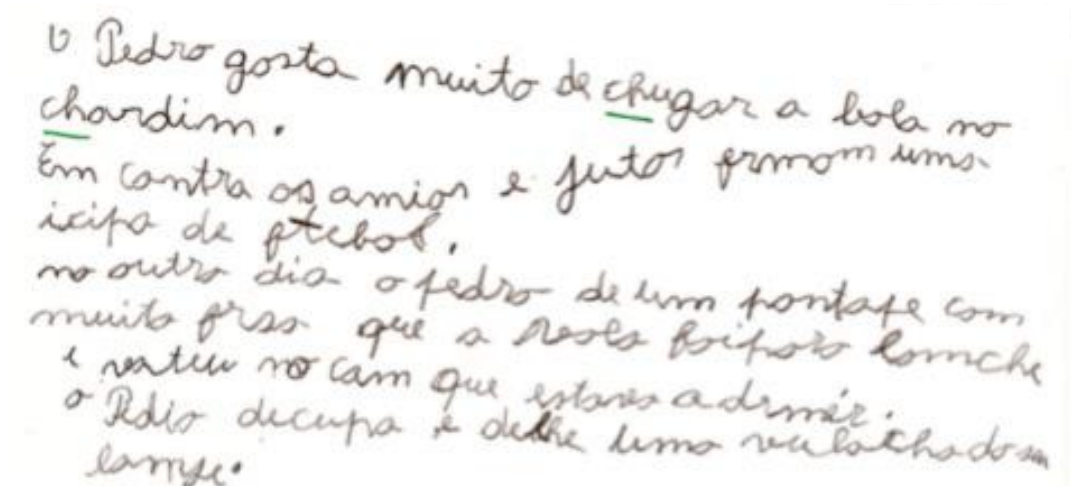 O Pedro gosta muito de chugar a bola no
chardim.
Em contra os amios e jutos frmom uma
icipa de ftebol.
no outro dia o pedro de um pontape com
muita frsa que a bola foi para lomche
e vateu no cam que estava a drmir.
o Pedro decupa e delhe uma vulachado um